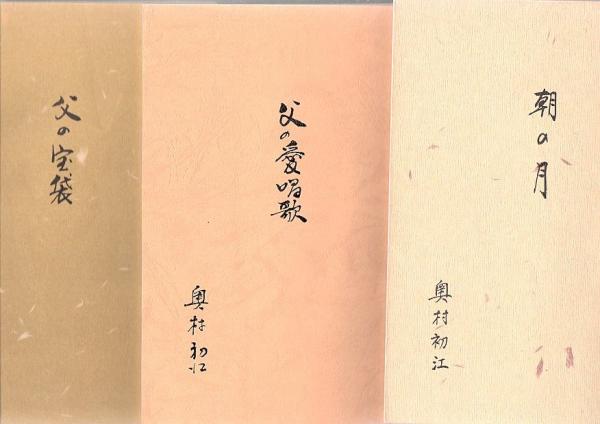 父の宝袋
父の愛唱歌
奥村初江
朝の月
奥村初江